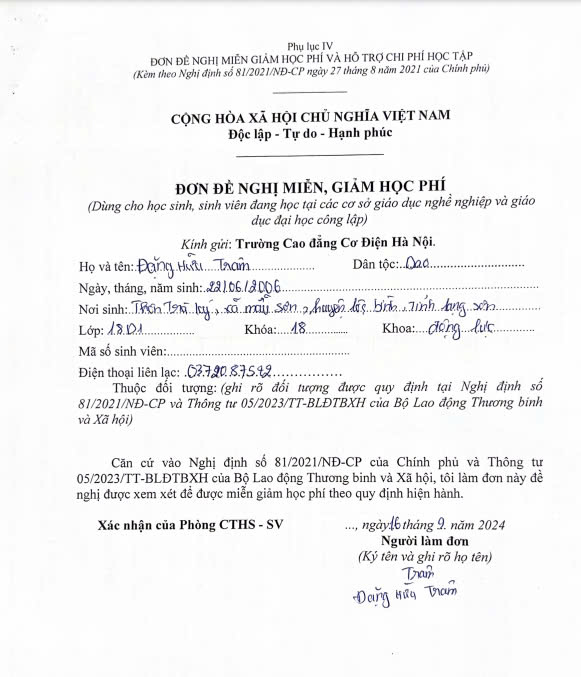 Phụ lục IV
ĐƠN ĐỀ NGHỊ MIỄN GIẢM HỌC PHÍ VÀ HỖ TRỢ CHI PHÍ HỌC TẬP
(Kèm theo Nghị định số 81/2021/NĐ-CP ngày 27 tháng 8 năm 2021 của Chính phủ)
CỘNG HÒA XÃ HỘI CHỦ NGHĨA VIỆT NAM
Độc lập - Tự do - Hạnh phúc
ĐƠN ĐỀ NGHỊ MIỄN, GIẢM HỌC PHÍ
(Dùng cho học sinh, sinh viên đang học tại các cơ sở giáo dục nghề nghiệp và giáo
dục đại học công lập)
Kính gửi: Trường Cao đẳng Cơ Điện Hà Nội.
Họ và tên: Đặng Hữu Trâm Dân tộc: Dao
Ngày, tháng, năm sinh: 22/06/2006
Nơi sinh: Thôn ký, xã mẫu sơn, huyện lộc bình, tỉnh lạng sơn
Lớp: 18D1 Khóa: 18 Khoa: động lực
Mã số sinh viên:
Điện thoại liên lạc: 03720.87592
Thuộc đối tượng: (ghi rõ đối tượng được quy định tại Nghị định số
81/2021/NĐ-CP và Thông tư 05/2023/TT-BLĐTBXH của Bộ Lao động Thương binh
và Xã hội)
Căn cứ vào Nghị định số 81/2021/NĐ-CP của Chính phủ và Thông tư
05/2023/TT-BLĐTBXH của Bộ Lao động Thương binh và Xã hội, tôi làm đơn này đề
nghị được xem xét để được miễn giảm học phí theo quy định hiện hành.
Xác nhận của Phòng CTHS - SV ..., ngày 16 tháng 9. năm 2024
Người làm đơn
(Ký tên và ghi rõ họ tên)
Trâm
Đặng Hữu Trâm